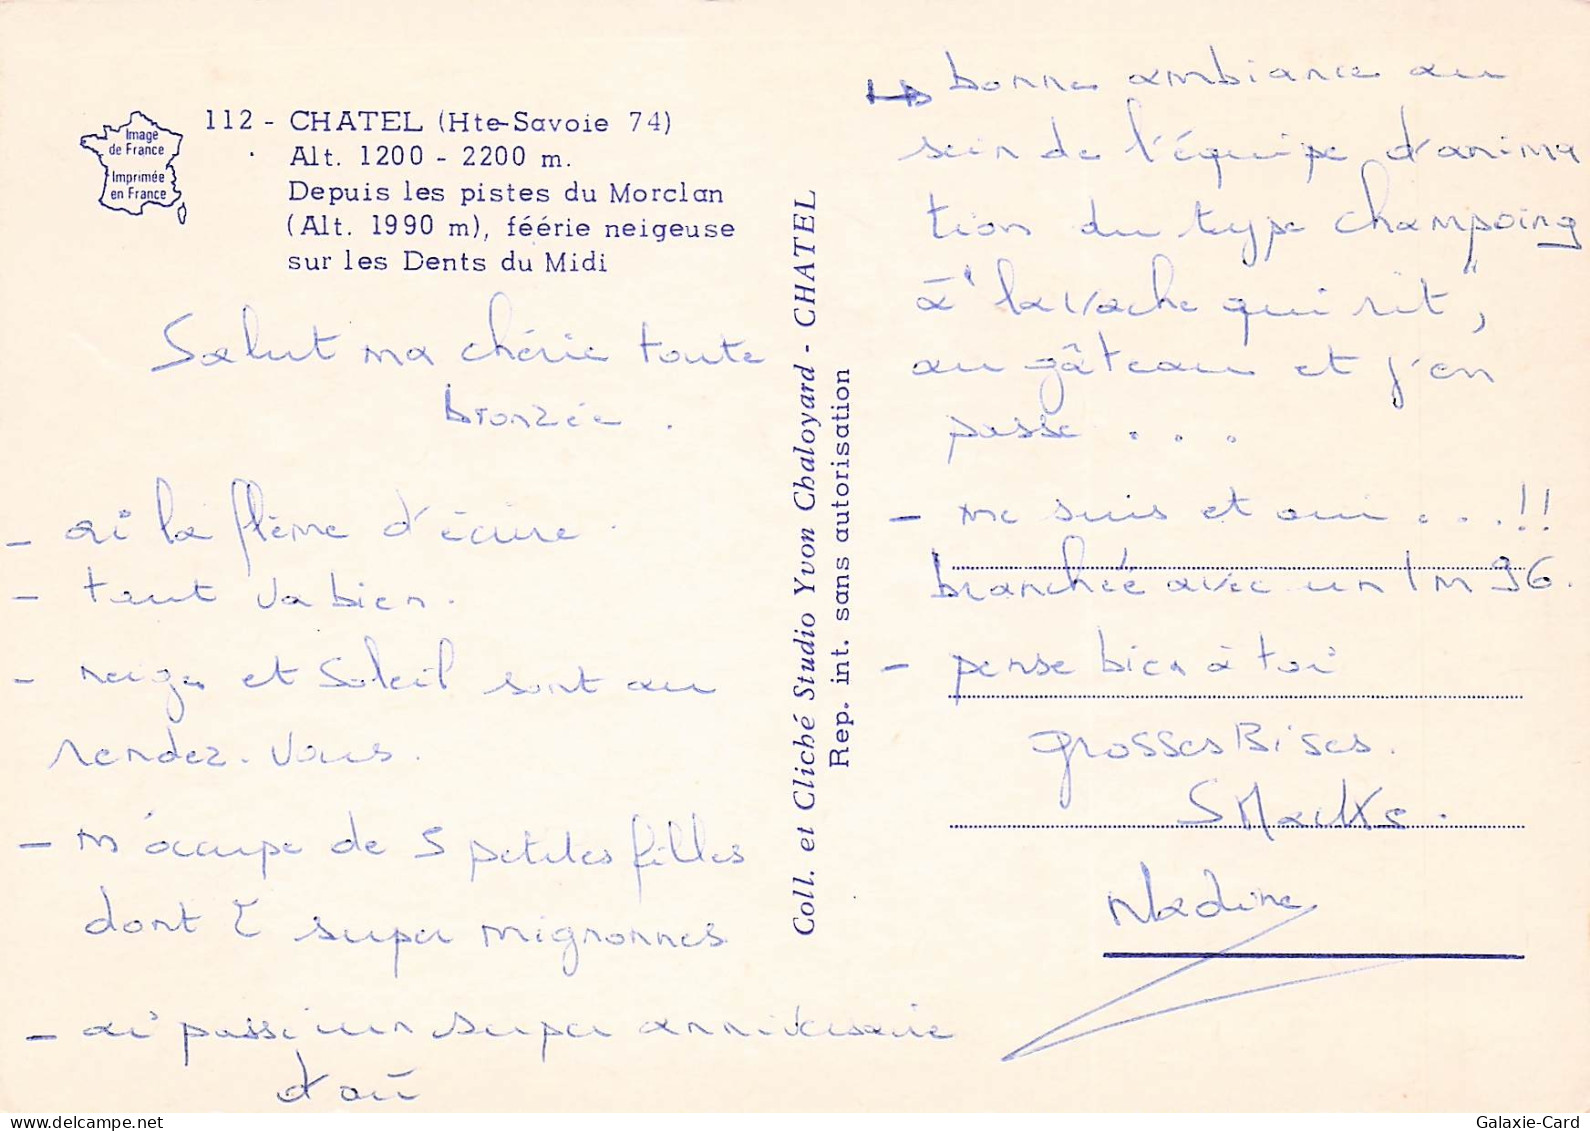 Image
de France
Imprimée
en France
112 - CHATEL (Hte-Savoie 74)
Alt. 1200 - 2200 m.
Depuis les pistes du Morclan
(Alt. 1990 m), féérie neigeuse
sur les Dents du Midi
Salut ma chérie toute
bronzée.
- ai la flème d'écrire.
- tout va bien.
- neige et Soleil sont au
rendez-vous.
- m'occupe de 5 petites filles
dont 2 super mignonnes
- ai passé un super anniversaire
d'où
Coll. et Cliché Studio Yvon Chaloyard - CHATEL
Rep. int. sans autorisation
↳ bonne ambiance au
sein de l'équipe d'anima
tion du type champoing
à "la vache qui rit",
au gâteau et j'en
passe ...
- me suis et oui ...!!
branchée avec un 1m96.
- pense bien à toi
grosses Bises.
Nadine
www.delcampe.net
Galaxie-Card